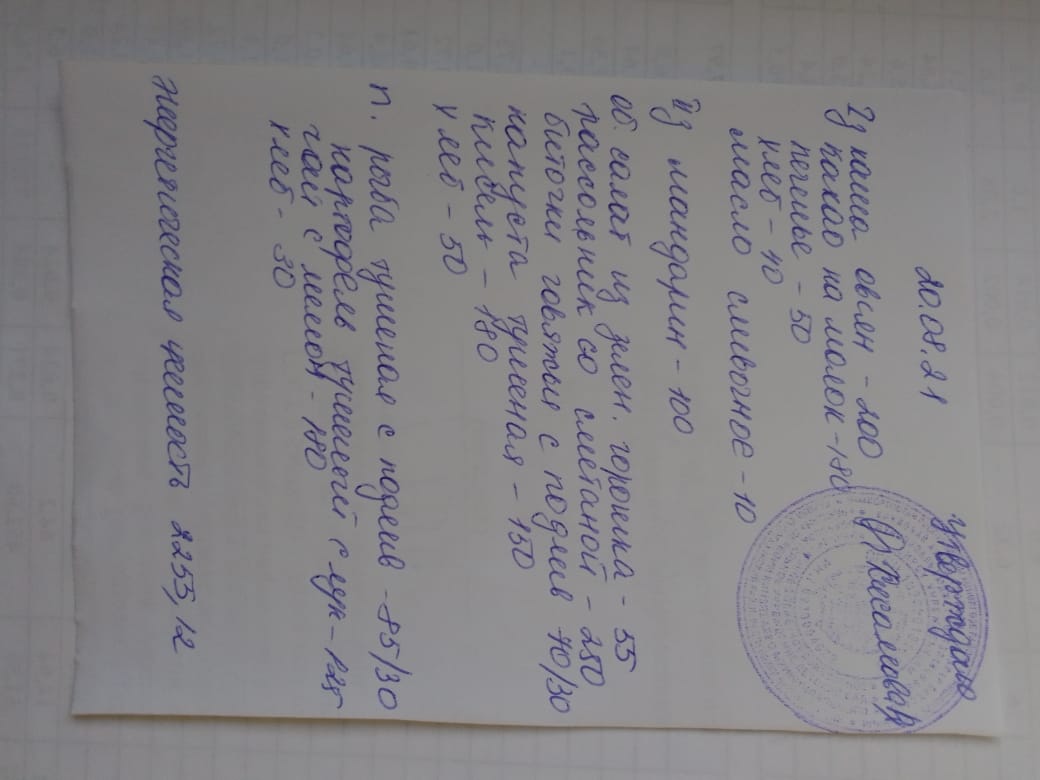 20.08.21
утверждаю
Iз каша овсян - 200
какао на молок - 180
печенье - 50
хлеб - 40
масло сливочное - 10
IIз мандарин - 100
об. салат из зелен. горошка - 55
рассольник со сметаной - 250
биточки говяжьи с подлив 70/30
капуста тушеная - 150
кисель - 180
хлеб - 50
п. рыба тушеная с подлив - 85/30
картофель тушеный с лук - 125
чай с мелисой - 180
хлеб - 30
Энергетическая ценность 2253,12